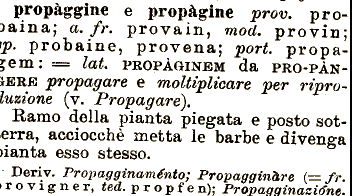 propàggine e propàgine prov. pro-
baina; a. fr. provain, mod. provin;
sp. probaine, provena; port. propa-
gem: = lat. PROPÀGINEM da PRO-PÀN-
GERE propagare e moltiplicare per ripro-
duzione (v. Propagare).
Ramo della pianta piegata e posto sot-
terra, acciocchè metta le barbe e divenga
pianta esso stesso.
Deriv. Propagginaménto; Propagginàre (= fr.
provigner, ted. propfen); Propagginazióne.